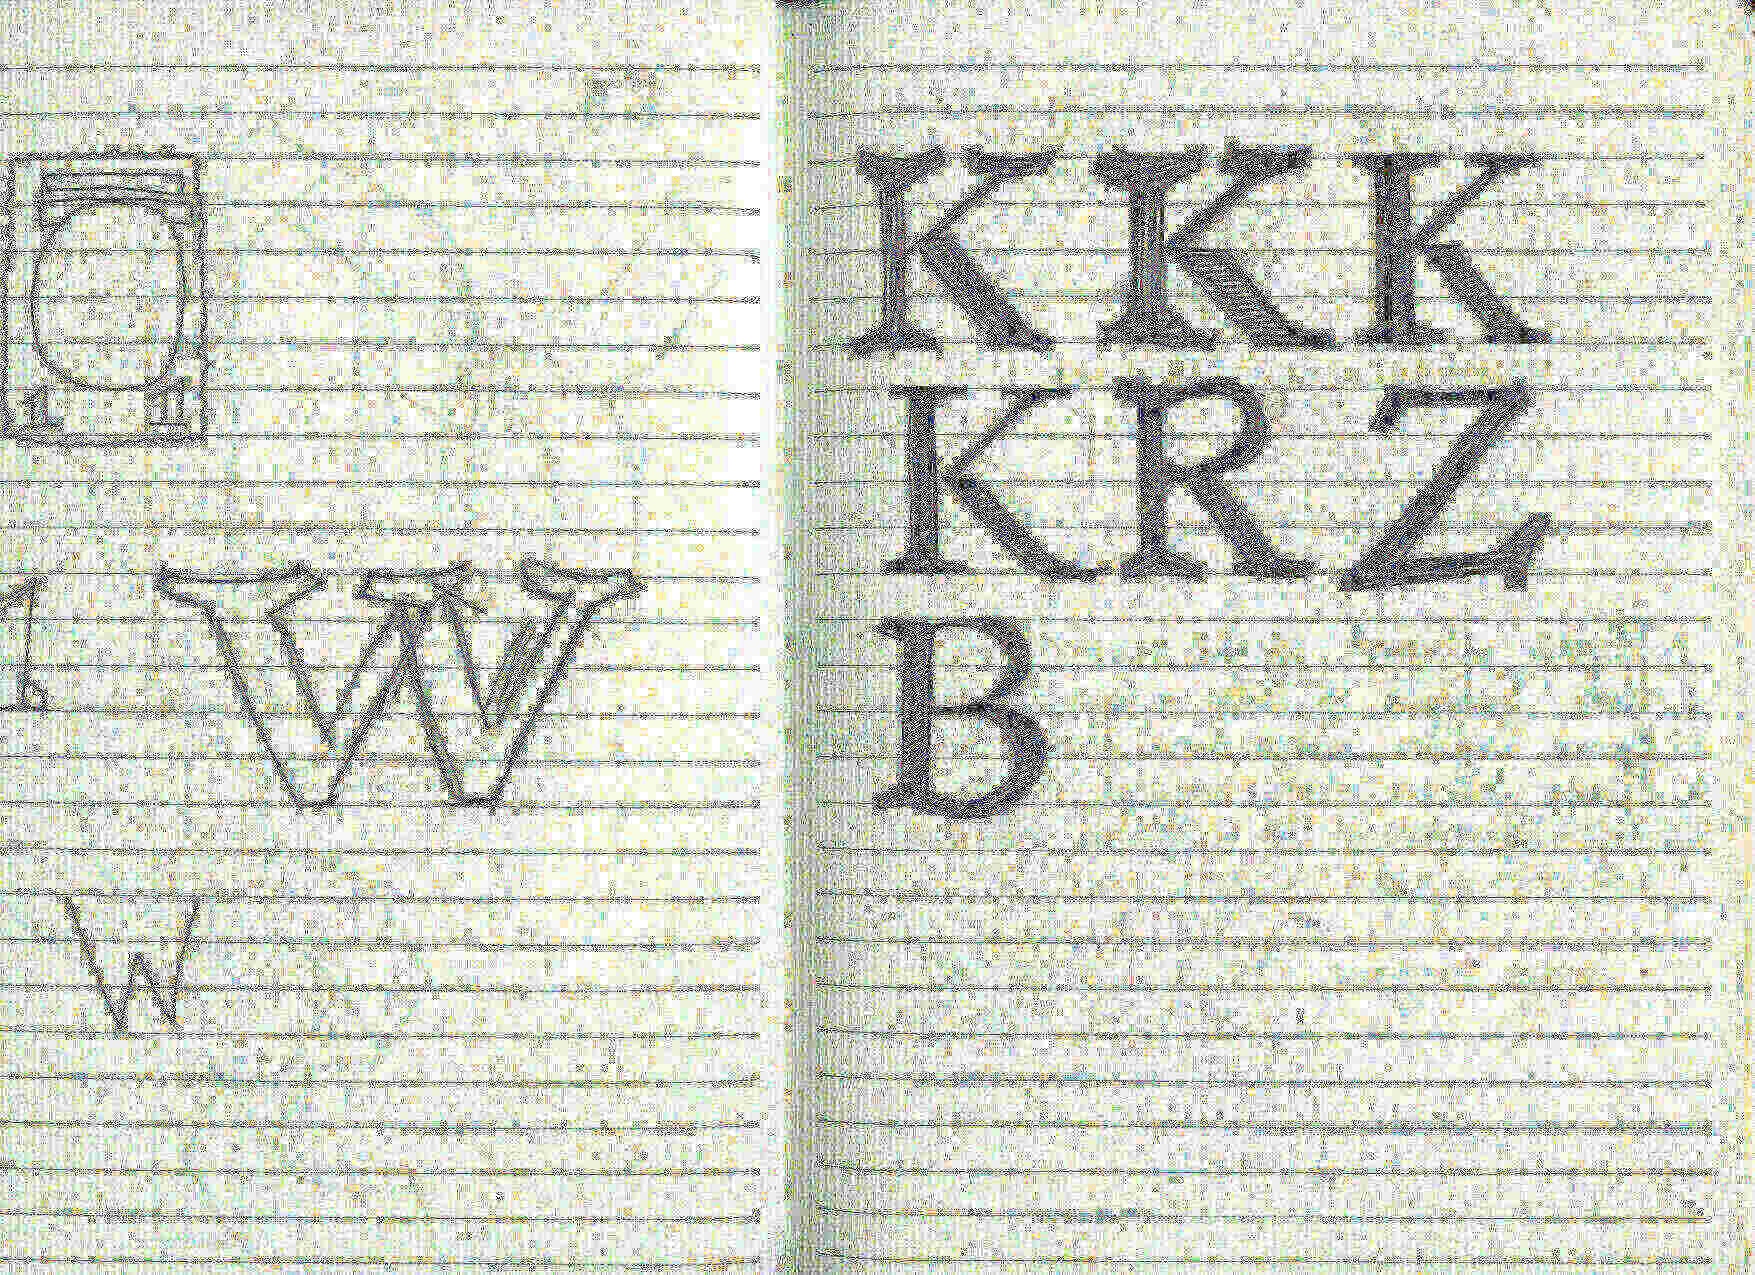 W
W
KKK
KRZ
B